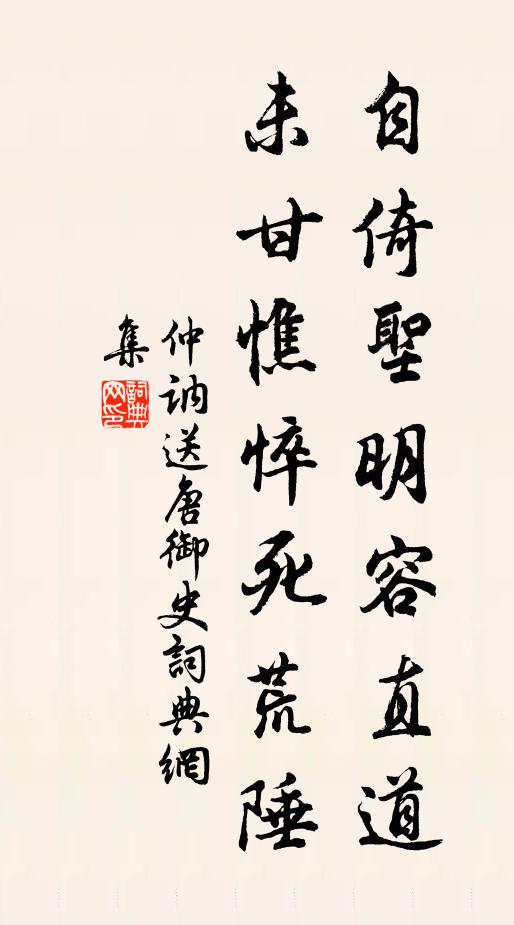 自倚聖明容直道
未甘憔悴死荒陲
仲訥送唐御史詞典網
集
詞典網印